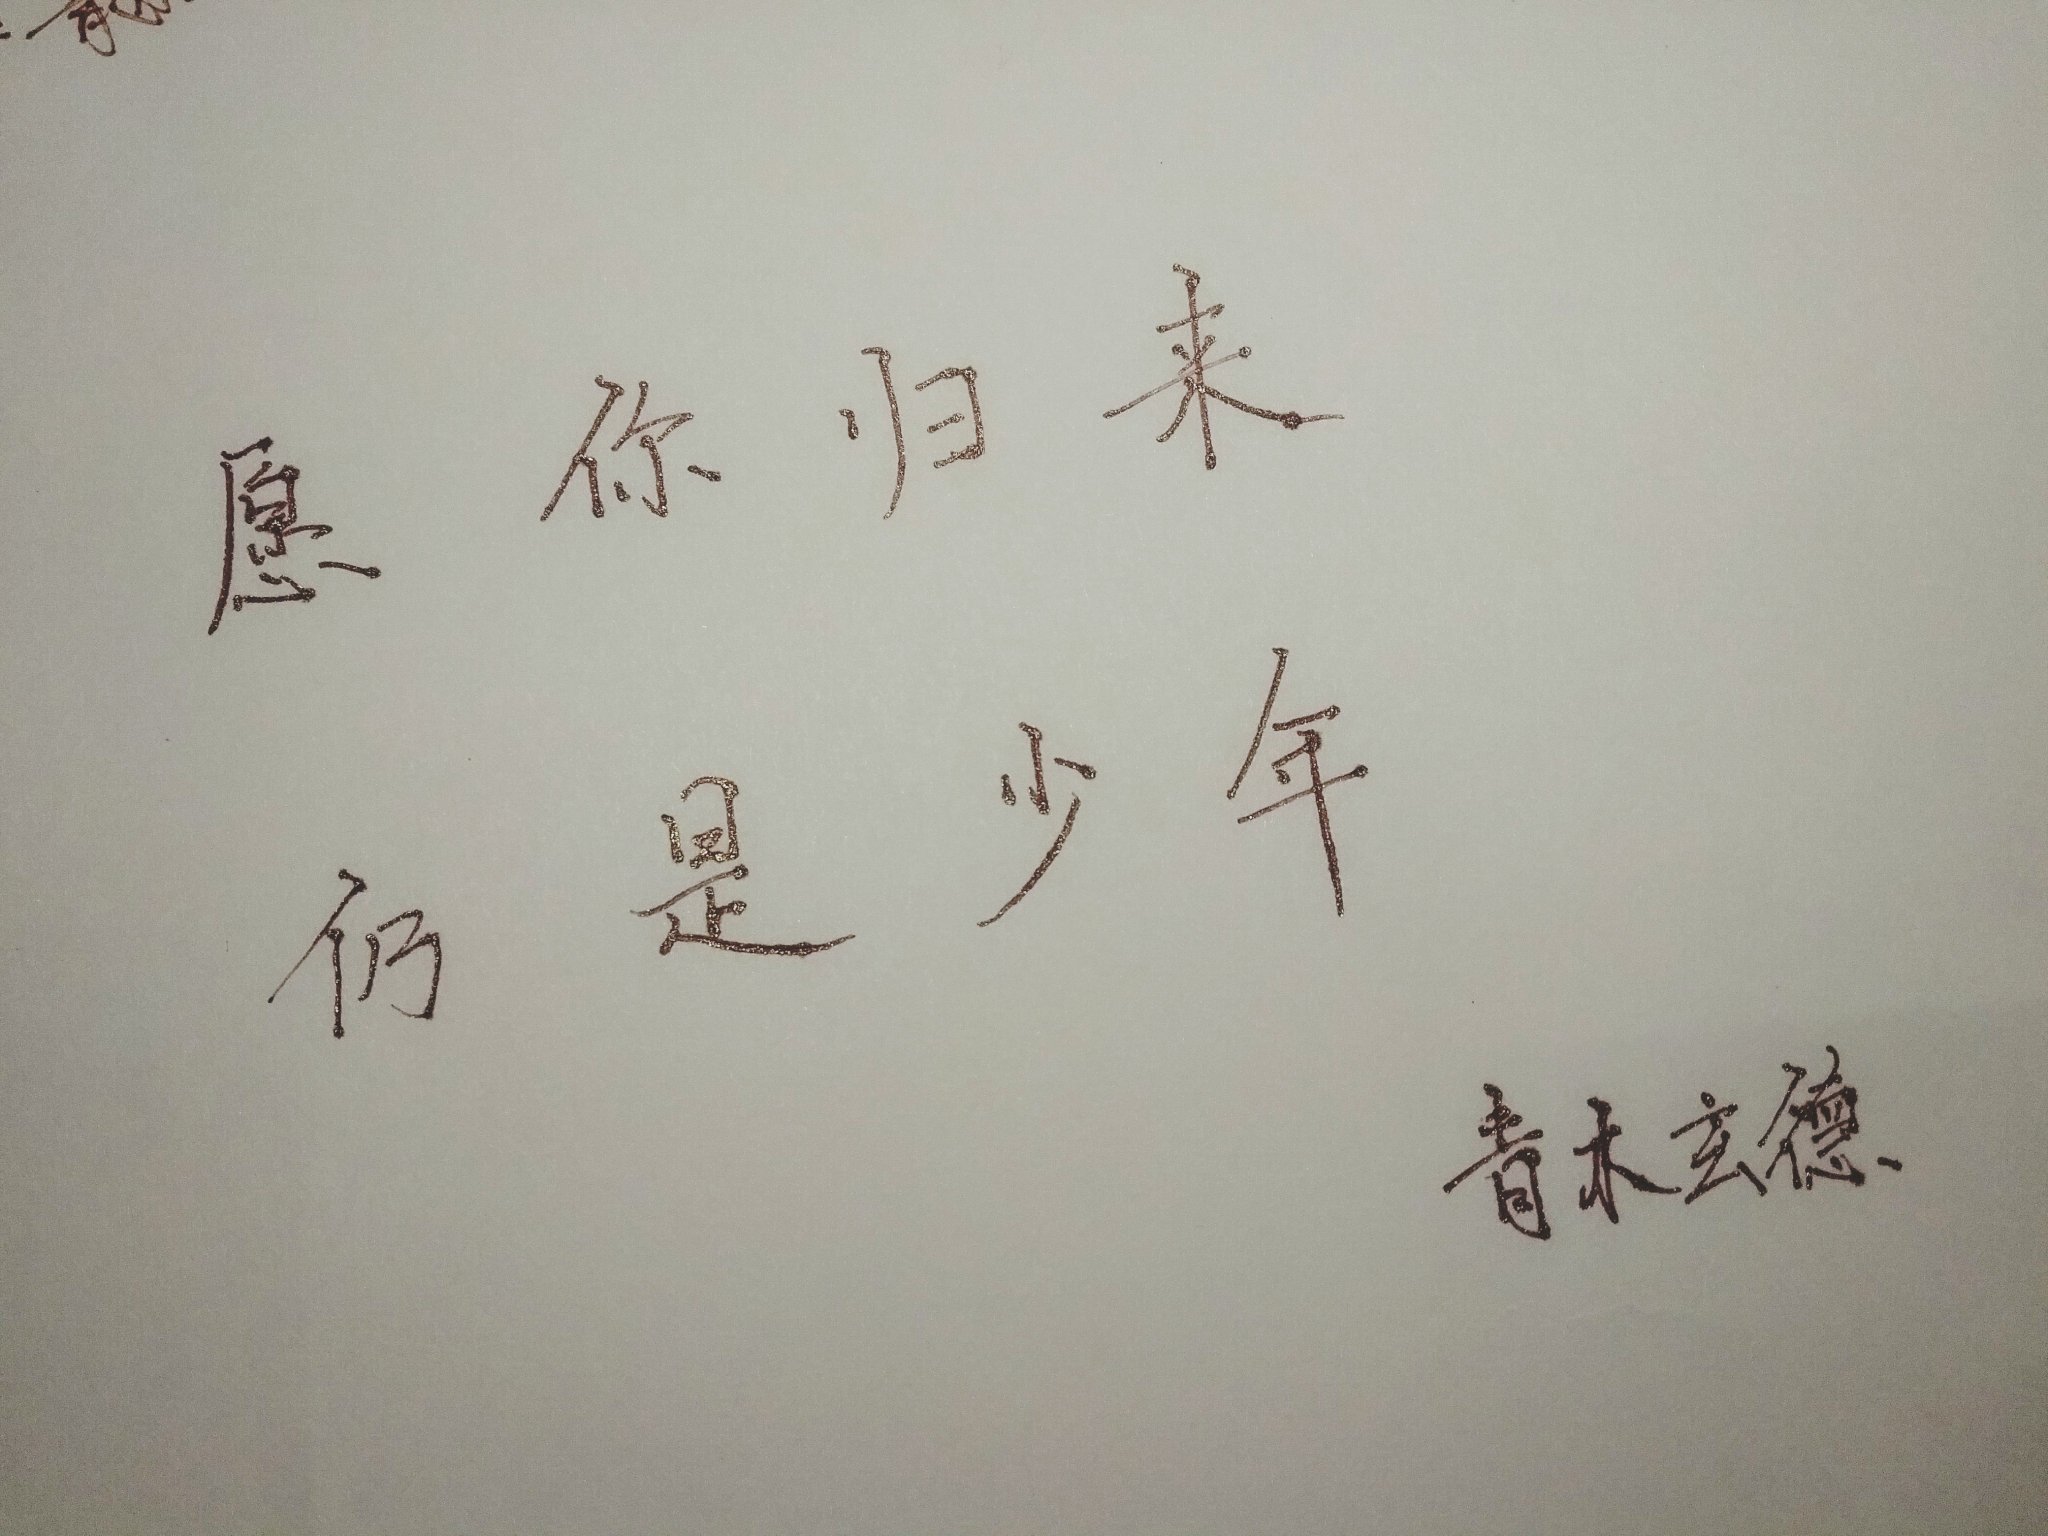 愿你归来
仍是少年
青木玄德